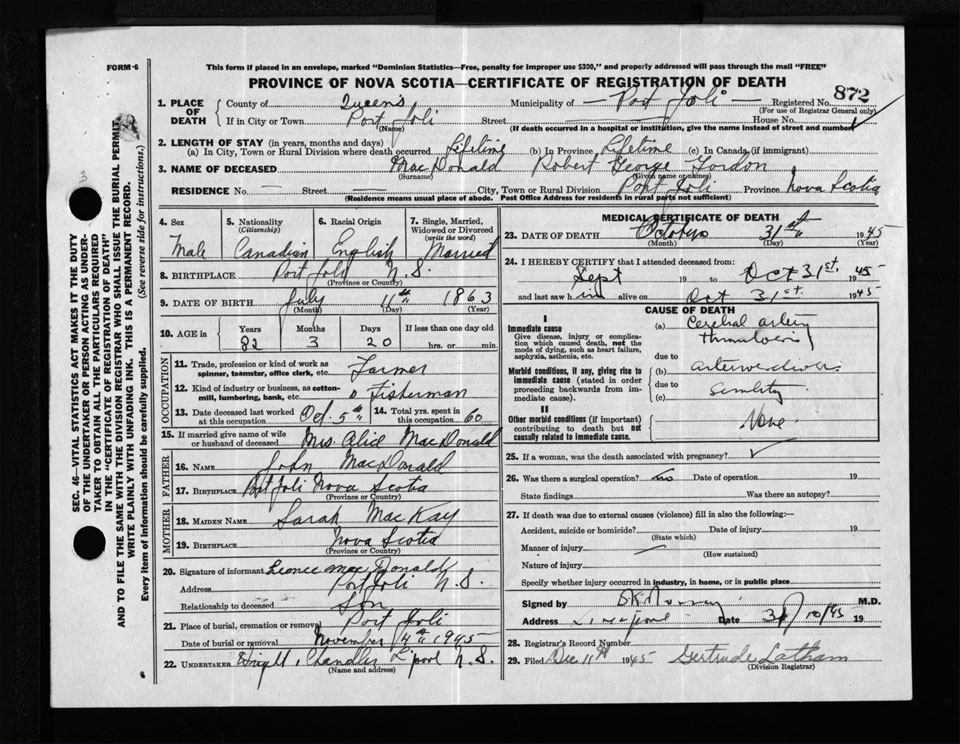 FORM-6
This form if placed in an envelope, marked "Dominion Statistics—Free, penalty for improper use $300," and properly addressed will pass through the mail "FREE"
PROVINCE OF NOVA SCOTIA—CERTIFICATE OF REGISTRATION OF DEATH
1. PLACE OF DEATH
County of Queens Municipality of — Port Joli — Registered No. 872
(For use of Registrar General only)
If in City or Town Port Joli Street House No.
(Name) (If death occurred in a hospital or institution, give the name instead of street and number)
2. LENGTH OF STAY (in years, months and days)
(a) In City, Town or Rural Division where death occurred Lifetime (b) In Province Lifetime (c) In Canada (if immigrant)
3. NAME OF DECEASED MacDonald Robert George Gordon
(Surname) (Given name or names)
RESIDENCE No. — Street — City, Town or Rural Division Port Joli Province Nova Scotia
(Residence means usual place of abode. Post Office Address for residents in rural parts not sufficient)
4. Sex 5. Nationality (Citizenship) 6. Racial Origin 7. Single, Married, Widowed or Divorced (write the word)
Male Canadian English Married
8. BIRTHPLACE Port Joli N.S.
(Province or Country)
9. DATE OF BIRTH July 11th 1863
(Month) (Day) (Year)
10. AGE in Years Months Days If less than one day old
82 3 20 hrs. or min.
OCCUPATION
11. Trade, profession or kind of work as spinner, teamster, office clerk, etc. Farmer
12. Kind of industry or business, as cotton-mill, lumbering, bank, etc. Fisherman
13. Date deceased last worked at this occupation Oct. 5th 14. Total yrs. spent in this occupation 60
15. If married give name of wife or husband of deceased Mrs Alice MacDonald
FATHER
16. NAME John MacDonald
17. BIRTHPLACE Port Joli Nova Scotia
(Province or Country)
MOTHER
18. MAIDEN NAME Sarah MacKay
19. BIRTHPLACE Nova Scotia
(Province or Country)
20. Signature of informant MacDonald
Address Port Joli N.S.
Relationship to deceased Son
21. Place of burial, cremation or removal Port Joli
Date of burial or removal November 4th 1945
22. UNDERTAKER Wright, Chandler L'pool N.S.
(Name and address)
MEDICAL CERTIFICATE OF DEATH
23. DATE OF DEATH October 31st 1945
(Month) (Day) (Year)
24. I HEREBY CERTIFY that I attended deceased from:
Sept 19 to Oct 31st. 1945
and last saw him alive on Oct 31st. 1945
CAUSE OF DEATH
I
Immediate cause
Give disease, injury or complication which caused death, not the mode of dying, such as heart failure, asphyxia, asthenia, etc.
(a) Cerebral artery
due to
Morbid conditions, if any, giving rise to immediate cause (stated in order proceeding backwards from immediate cause).
(b)
due to
(c) Senility
II
Other morbid conditions (if important) contributing to death but not causally related to immediate cause.
None.
25. If a woman, was the death associated with pregnancy?
26. Was there a surgical operation? no Date of operation 19
State findings Was there an autopsy?
27. If death was due to external causes (violence) fill in also the following:—
Accident, suicide or homicide? Date of injury 19
(State which)
Manner of injury
(How sustained)
Nature of injury
Specify whether injury occurred in industry, in home, or in public place
Signed by M.D.
Address Liverpool Date 31/10/45 19
28. Registrar's Record Number
29. Filed Dec 11th 1945 Gertrude Latham
(Division Registrar)
SEC. 46—VITAL STATISTICS ACT MAKES IT THE DUTY
OF THE UNDERTAKER OR PERSON ACTING AS UNDER-
TAKER TO OBTAIN ALL THE PARTICULARS REQUIRED
IN THE "CERTIFICATE OF REGISTRATION OF DEATH"
AND TO FILE THE SAME WITH THE DIVISION REGISTRAR WHO SHALL ISSUE THE BURIAL PERMIT.
WRITE PLAINLY WITH UNFADING INK. THIS IS A PERMANENT RECORD.
Every item of information should be carefully supplied. (See reverse side for instructions.)
3
6